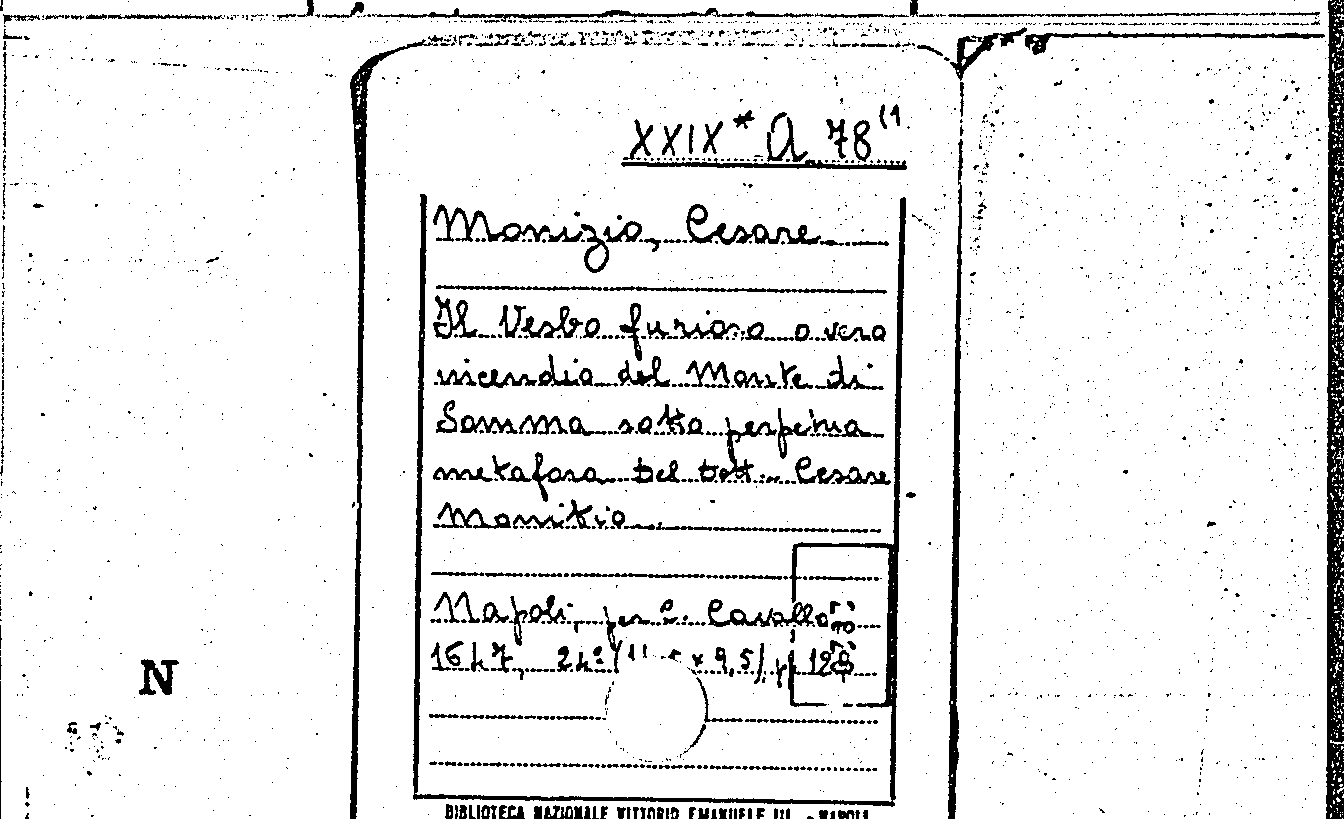 XXIX* A 78(1
Monizio, Cesare
Il Vesbo furioso o vero
incendio del Monte di
Somma sotto perpetua
metafora Del Dott. Cesare
Monitio.
Napoli, per C. Cavallo
1647, 24° x 9,5/
N
BIBLIOTECA NAZIONALE VITTORIO EMANUELE III - NAPOLI